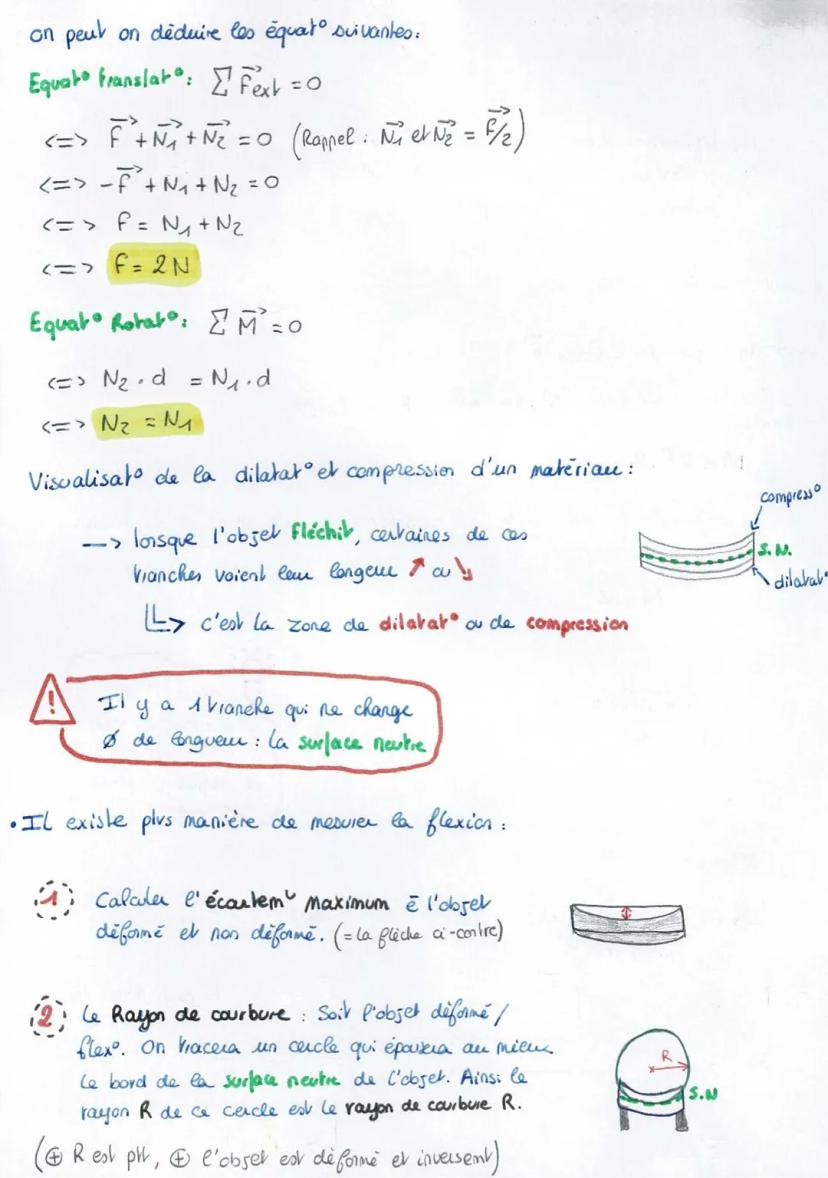 on peut on déduire les équat° suivantes:
Equat° translat°: Σ F⃗ext = 0
<=> F⃗ + N⃗₁ + N⃗₂ = 0 (Rappel : N⃗₁ et N⃗₂ = F⃗/2)
<=> -F⃗ + N₁ + N₂ = 0
<=> F = N₁ + N₂
<=> F = 2N
Equat° Rotat°: Σ M⃗ = 0
<=> N₂ . d = N₁ . d
<=> N₂ = N₁
Visualisat° de la dilatat° et compression d'un matériau :
compress°
—> lorsque l'objet fléchit, certaines de ces
S.N.
tranches voient leur longeur ↗ ou ↘
dilatat°
↳> c'est la zone de dilatat° ou de compression
! Il y a 1 tranche qui ne change
Ø de longueur : la surface neutre
• Il existe plrs manière de mesurer la flexion :
1 Calculer l'écartemᵗ maximum ē l'objet
déformé et non déformé. (= la flèche ci-contre)
2 Le Rayon de courbure : Soit l'objet déformé /
flex°. On tracera un cercle qui épousera au mieux
R
le bord de la surface neutre de l'objet. Ainsi le
S.N
rayon R de ce cercle est le rayon de courbure R.
(⊕ R est ptt, ⊕ l'objet est déformé et inversemt)